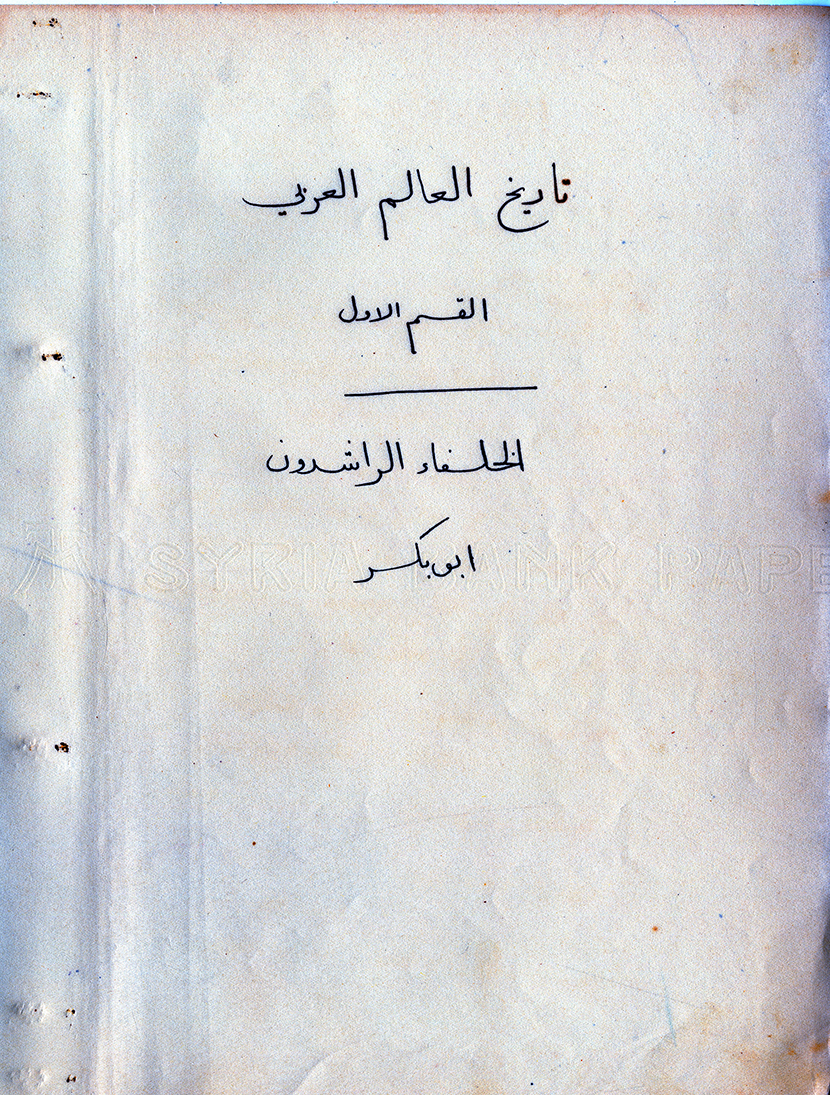 تاريخ العالم العربي
القسم الاول
الخلفاء الراشدون
ابو بكر
SYRIA BANK PAPE